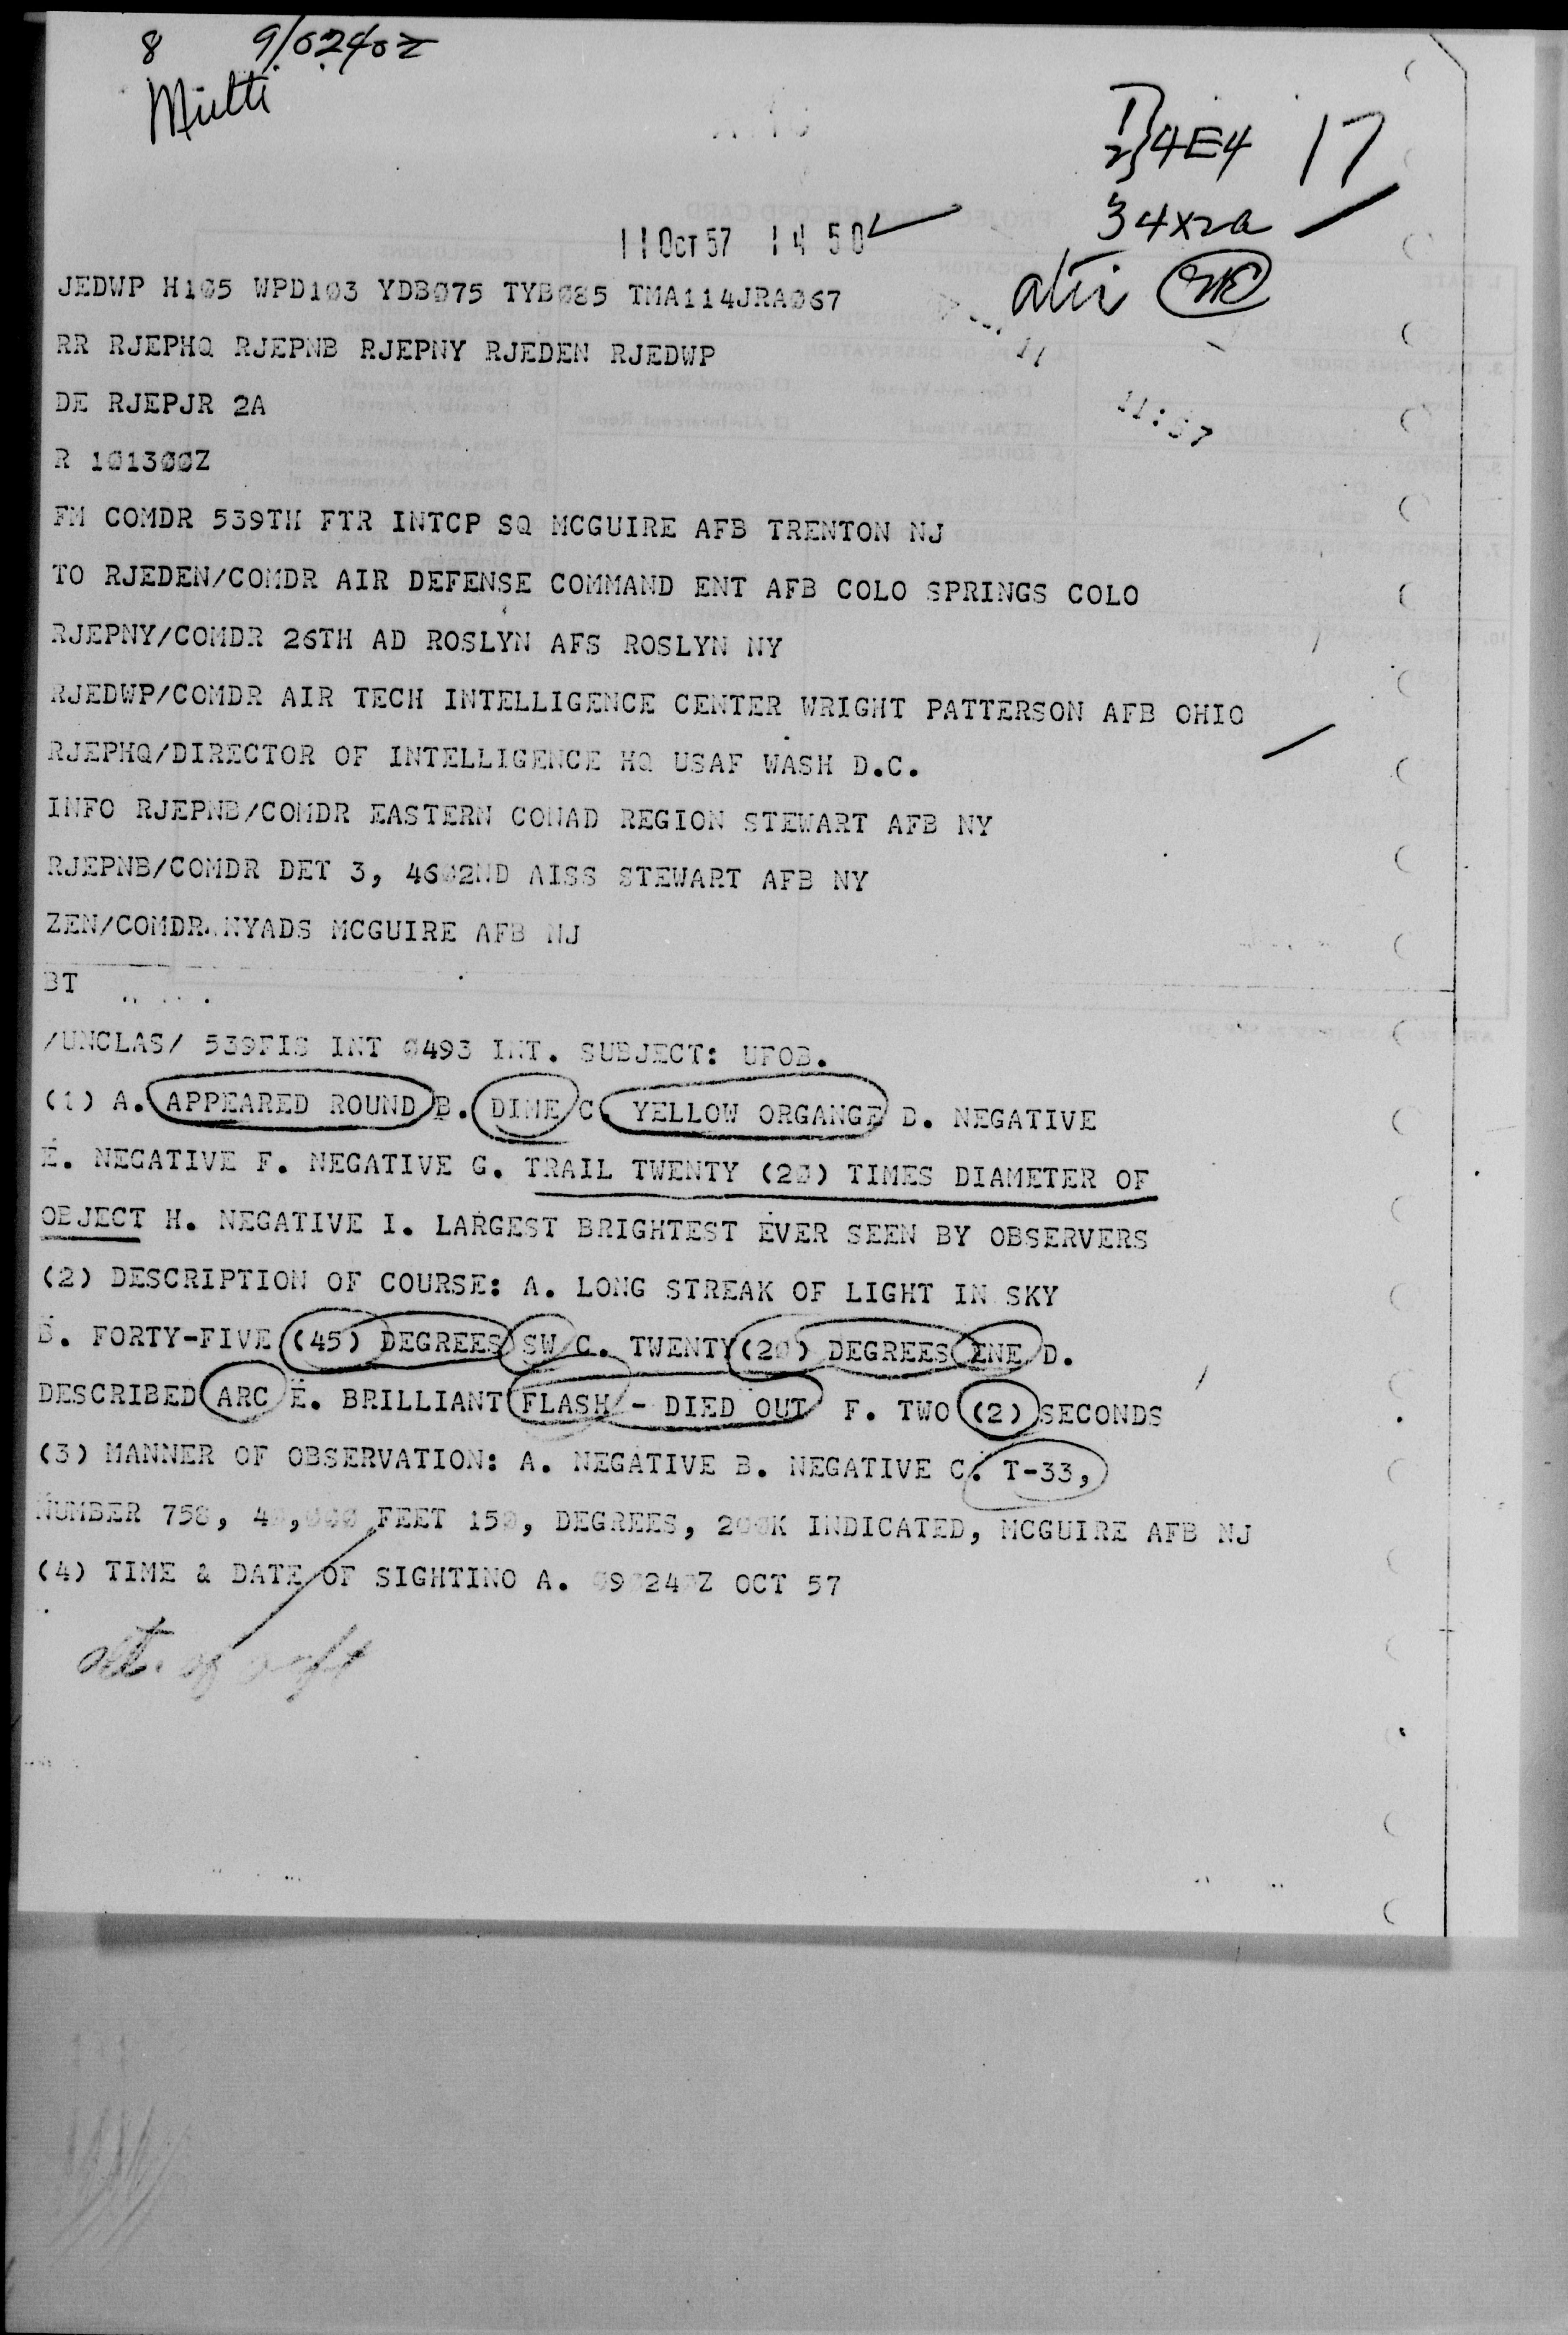 8 9/0240Z
Multi
1) 4E4 17
2)
3 4X2a
11 OCT 57 14 50
atii
JEDWP H105 WPD103 YDB075 TYB085 TMA114JRA067
11
RR RJEPHQ RJEPNB RJEPNY RJEDEN RJEDWP
DE RJEPJR 2A
11:57
R 101300Z
FM COMDR 539TH FTR INTCP SQ MCGUIRE AFB TRENTON NJ
TO RJEDEN/COMDR AIR DEFENSE COMMAND ENT AFB COLO SPRINGS COLO
RJEPNY/COMDR 26TH AD ROSLYN AFS ROSLYN NY
RJEDWP/COMDR AIR TECH INTELLIGENCE CENTER WRIGHT PATTERSON AFB OHIO
RJEPHQ/DIRECTOR OF INTELLIGENCE HQ USAF WASH D.C.
INFO RJEPNB/COMDR EASTERN CONAD REGION STEWART AFB NY
RJEPNB/COMDR DET 3, 4602ND AISS STEWART AFB NY
ZEN/COMDR NYADS MCGUIRE AFB NJ
BT
/UNCLAS/ 539FIS INT 0493 INT. SUBJECT: UFOB.
(1) A. APPEARED ROUND B. DIME C. YELLOW ORGANGE D. NEGATIVE
E. NEGATIVE F. NEGATIVE G. TRAIL TWENTY (20) TIMES DIAMETER OF
OBJECT H. NEGATIVE I. LARGEST BRIGHTEST EVER SEEN BY OBSERVERS
(2) DESCRIPTION OF COURSE: A. LONG STREAK OF LIGHT IN SKY
B. FORTY-FIVE (45) DEGREES SW C. TWENTY (20) DEGREES ENE D.
DESCRIBED ARC E. BRILLIANT FLASH - DIED OUT F. TWO (2) SECONDS
(3) MANNER OF OBSERVATION: A. NEGATIVE B. NEGATIVE C. T-33,
NUMBER 758, 40,000 FEET 150, DEGREES, 200K INDICATED, MCGUIRE AFB NJ
(4) TIME & DATE OF SIGHTINO A. 090240Z OCT 57
alt. of a/ft